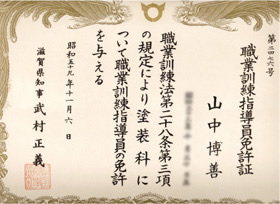 第二四七六号
職業訓練指導員免許証
山中博善
職業訓練法第二十八条第三項
の規定により塗装科に
ついて職業訓練指導員の免許
を与える
昭和五十九年十一月六日
滋賀県知事 武村正義